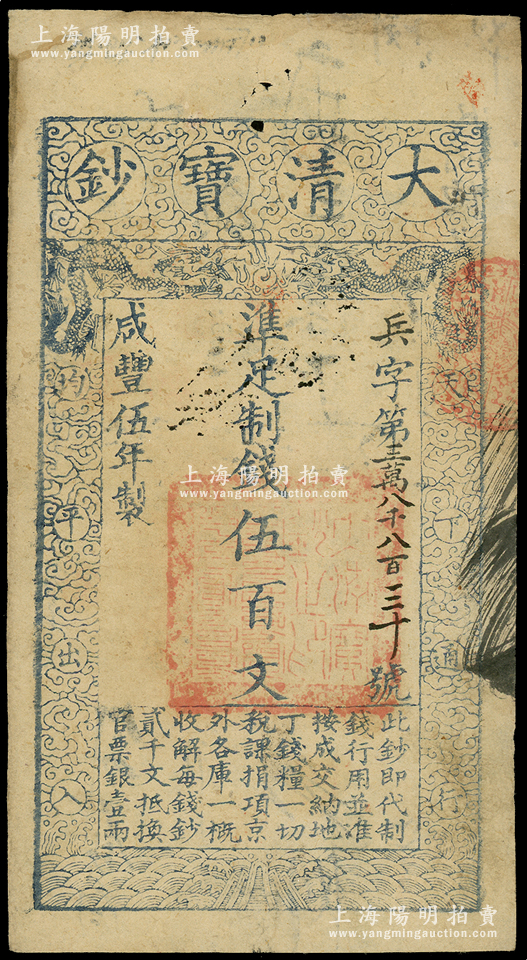 上海陽明拍賣
www.yangmingauction.com
大清寶鈔
天下通行
兵字第三萬八千八百三十號
準足制錢伍百文
咸豐伍年製
均平出入
此鈔即代制
錢行用並准
按成交納地
丁錢糧一切
稅課捐項京
外各庫一概
收解每錢鈔
貳千文抵換
官票銀壹兩
上海陽明拍賣
www.yangmingauction.com
上海陽明拍賣
www.yangmingauction.com